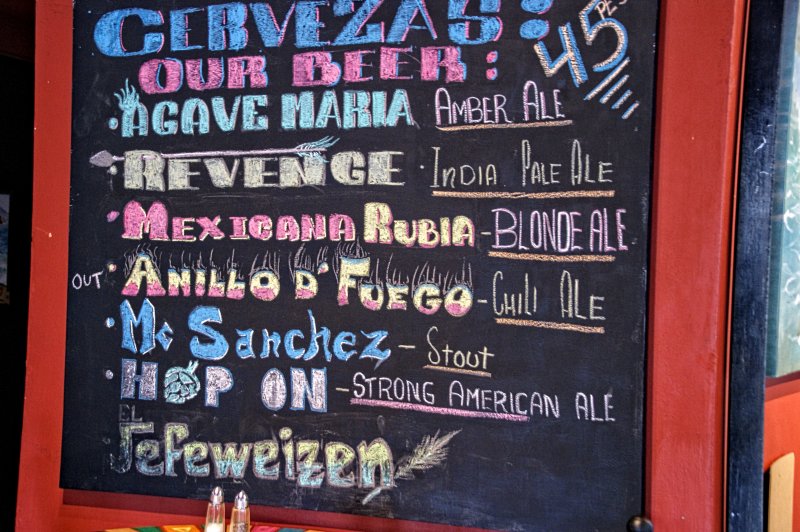 CERVEZAS: 45 PE
OUR BEER:
• AGAVE MARIA AMBER ALE
• REVENGE • INDIA PALE ALE
• MEXICANA RUBIA - BLONDE ALE
OUT • ANILLO D' FUEGO - CHILI ALE
• Mc Sanchez - Stout
• HOP ON - STRONG AMERICAN ALE
EL
Jefeweizen